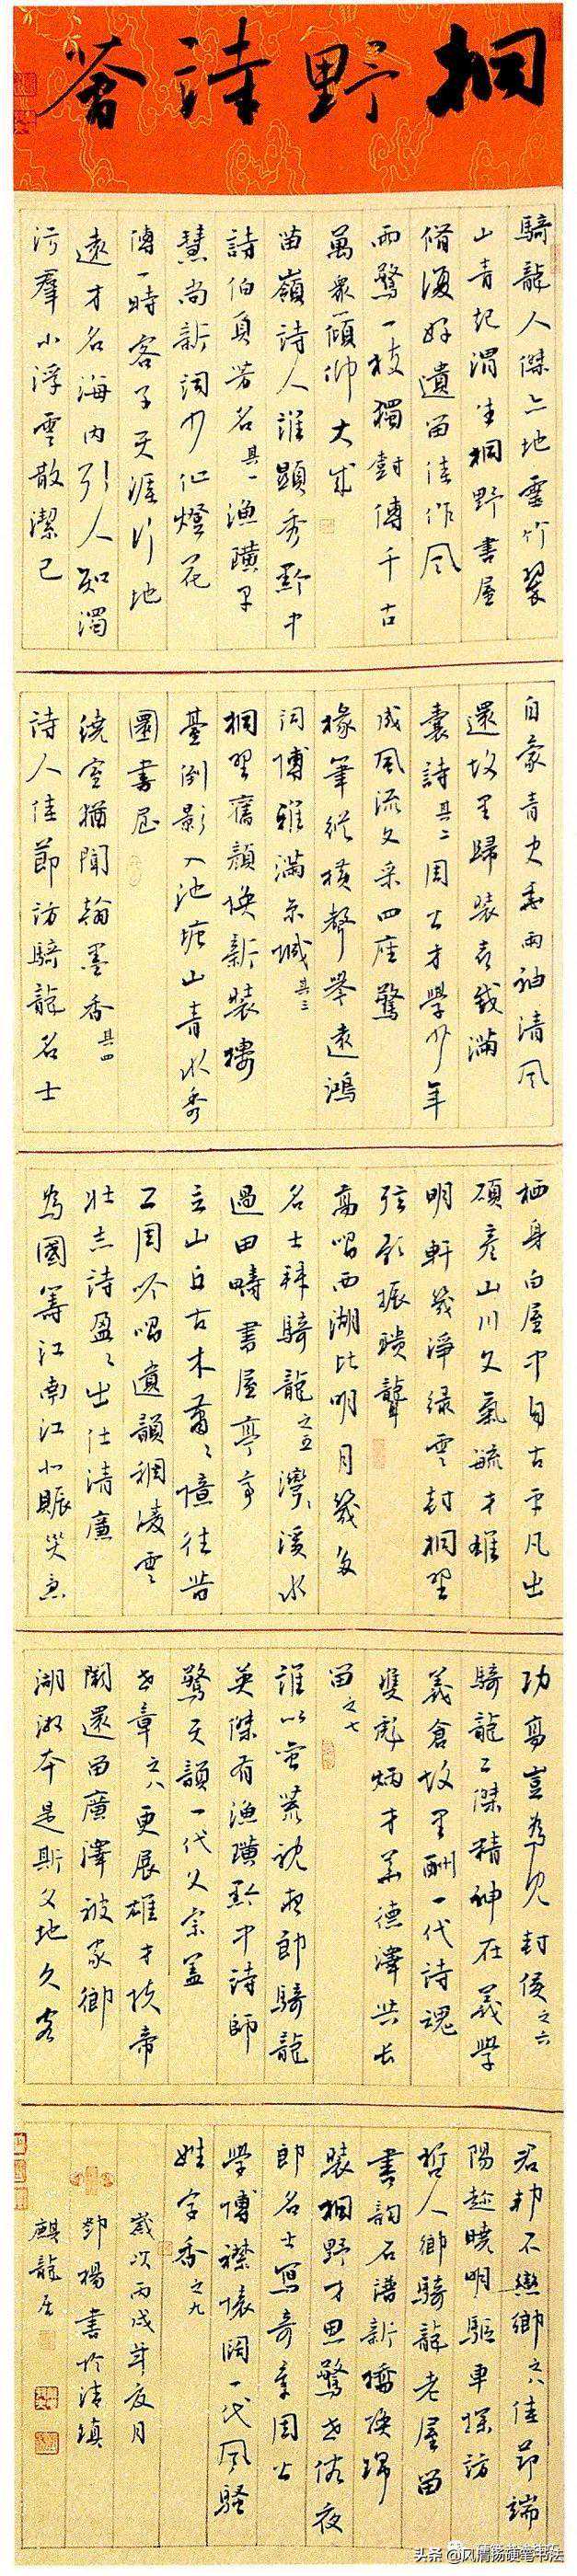 桐野詩薈
騎龍人傑亦地靈竹翠
山青紀渭生桐野書屋
脩復好遺留佳作風
雨驚一枝獨對傳千古
萬眾傾仰大成
苗嶺詩人誰顯秀黔中
詩伯負芳名其一漁璜早
慧尚新詞少作燈花
傳一時客子天涯行地
遠才名海內引人知濁
污羣小浮雲散潔己
自豪青史垂兩袖清風
還故里歸裝衣篋滿
囊詩其二周公才學少年
成風流文采四座驚
椽筆縱橫聲舉遠鴻
詞博雅滿京城其三
桐野舊顏換新裝樓
臺倒影入池塘山青水秀
圍書屋
繞室猶聞翰墨香其四
詩人佳節訪騎龍名士
栖身白屋中自古平凡出
碩彥山川文氣毓才雄
明軒幾淨綠雲封桐野
弦歌振聵聾
高唱西湖比明月幾多
名士拜騎龍之五灣灣溪水
過田疇書屋亭亭
立山丘古木蕭蕭憶往昔
二周吟唱遺韻稠凌雲
壯志詩盈盈出仕清廉
為國籌江南江北賑災急
功高豈為見封侯之六
騎龍二傑精神在義學
義倉故里酬一代詩魂
雙彪炳才華德澤共長
留之七
誰以蠻荒視夜郎騎龍
英傑有漁璜黔中詩師
驚天韻一代文宗蓋
世章之八更展雄才扶帝
闕還留廣澤被家鄉
湖湘本是斯文地久客
君邦不戀鄉之八佳節端
陽趁曉明驅車探訪
哲人鄉騎龍老屋留
書韵石譜新橋換錦
裝桐野才思驚世俗夜
郎名士寫奇章周公
學博襟懷闊一代風騷
姓字香之九
歲次丙戌年夏月
鄧楊書於清鎮
麒龍居
头条@风清扬硬笔书法